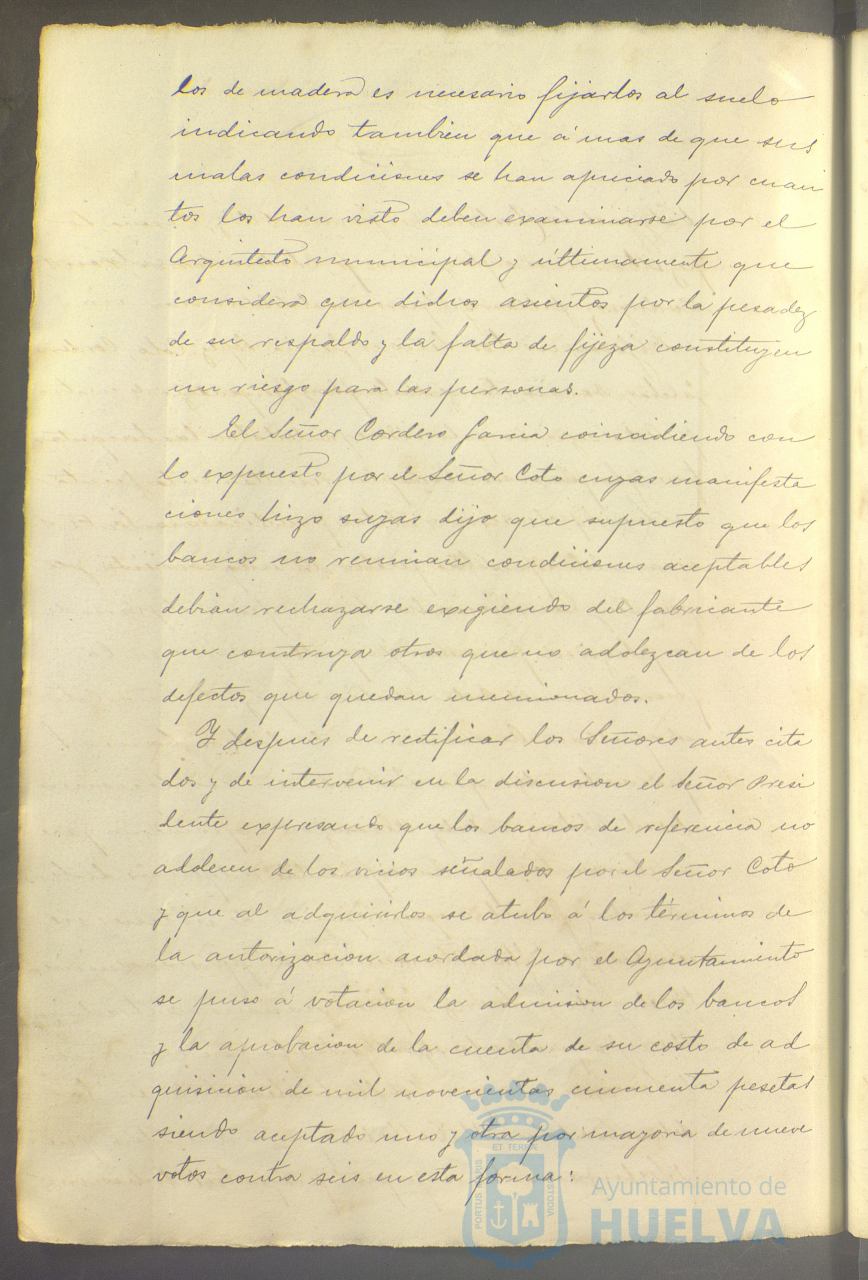 los de madera es necesario fijarlos al suelo
indicando tambien que á mas de que sus
malas condiciones se han apreciado por cuan
tos los han visto deben examinarse por el
Arquitecto municipal y últimamente que
considera que dichos asientos por la pesadez
de su respaldo y la falta de fijeza constituyen
un riesgo para las personas.
El Señor Cordero Garcia coincidiendo con
lo expuesto por el Señor Coto cuyas manifesta
ciones hizo suyas dijo que supuesto que los
bancos no reunian condiciones aceptables
debian rechazarse exigiendo del fabricante
que construya otros que no adolezcan de los
defectos que quedan mencionados.
Y despues de rectificar los Señores antes cita
dos y de intervenir en la discusion el Señor Presi
dente expresando que los bancos de referencia no
adolecen de los vicios señalados por el Señor Coto
y que al adquirirlos se atubo á los términos de
la autorizacion acordada por el Ayuntamiento
se puso á votacion la admision de los bancos
y la aprobacion de la cuenta de su costo de ad
quisicion de mil novecientas cincuenta pesetas
siendo aceptado uno y otra por mayoria de nueve
votos contra seis en esta forma:
PORTUS MARIS
ET TERRÆ
CUSTODIA
Ayuntamiento de
HUELVA